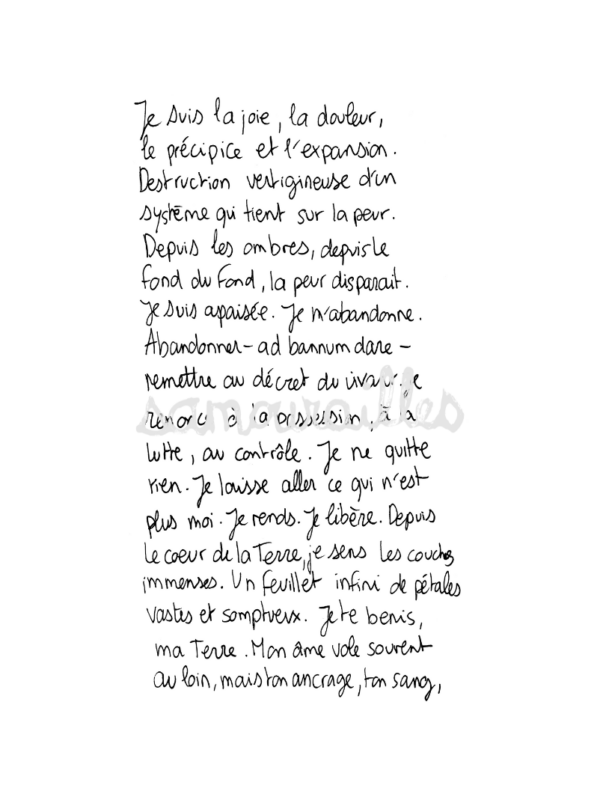 Je suis la joie, la douleur,
le précipice et l'expansion.
Destruction vertigineuse d'un
système qui tient sur la peur.
Depuis les ombres, depuis le
fond du fond, la peur disparait.
Je suis apaisée. Je m'abandonne.
Abandonner - ad bannum dare -
remettre au décret du vivant. Je
renonce à la possession, à la
lutte, au contrôle. Je ne quitte
rien. Je laisse aller ce qui n'est
plus moi. Je rends. Je libère. Depuis
le coeur de la Terre, je sens les couches
immenses. Un feuillet infini de pétales
vastes et somptueux. Je te bénis,
ma Terre. Mon âme vole souvent
au loin, mais ton ancrage, ton sang,
samouraïlles